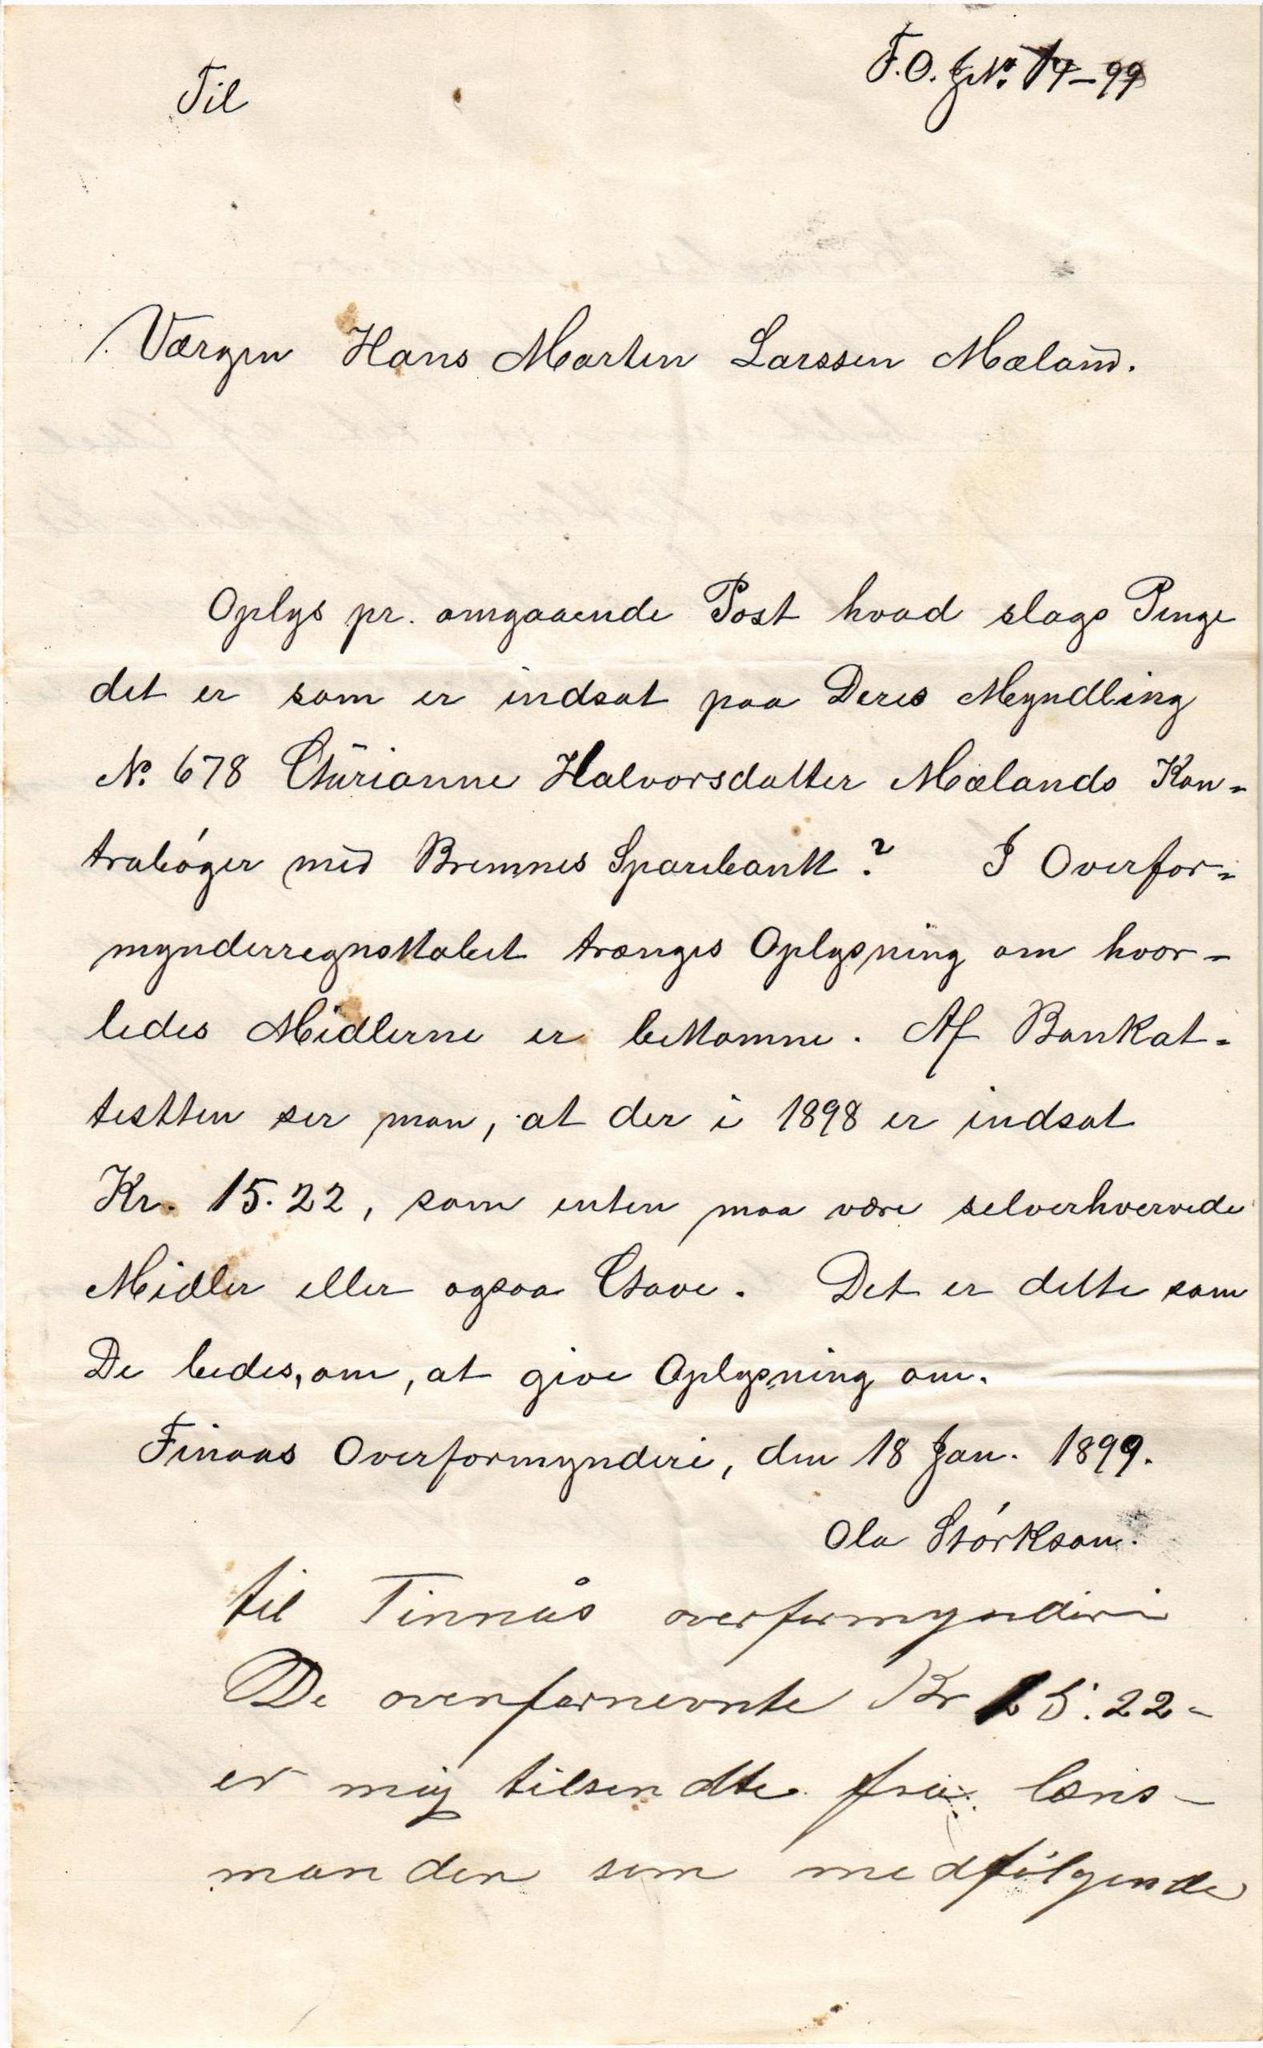 F.O. J№. 14-99
Til
Værgen Hans Marten Larssen Mæland.
Oplys pr. omgaaende Post hvad slags Penge
det er som er indsat paa Deres Myndling
№ 678 Gurianne Halvorsdatter Mælands Kon-
trabøger med Bremnes Sparebank? I Overfor-
mynderregnskabet trænges Oplysning om hvor-
ledes Midlerne er bekomne. Af Bankat-
testten ser man, at der i 1898 er indsat
Kr. 15.22, som enten maa være selverhvervede
Midler eller ogsaa Gave. Det er dette som
De bedes, om, at give Oplysning om.
Finaas Overformynderi, den 18 Jan. 1899.
Ola Størkson.
til Finnås overformynderi
De ovenfornevnte Kr 15.22-
er mig tilsendte fra læns-
manden som medfølgende